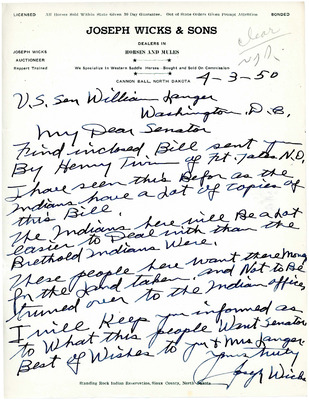 LICENSED All Horses Sold Within State Given 30 Day Guarantee. Out of State Orders Given Prompt Attention BONDED
JOSEPH WICKS & SONS
DEALERS IN
HORSES AND MULES
JOSEPH WICKS
AUCTIONEER
Expert Trained
We Specialize in Western Saddle Horses - Bought and Sold On Commission
CANNON BALL, NORTH DAKOTA
clear
4-3-50
U.S. Sen William Langer
Washington. D.C.
My Dear Senator
Find inclosed Bill sent
By Henry of Ft. Yates N.D.
I have seen this Befor as the
Indians have a Lot of copies of
this Bill.
The Indians here will Be a Lot
easier to Deal with than the
Berthold Indians Were.
These people here want there Mony
for the Land taken. and Not to Be
turned over to the Indian office,
I will Keep you informed as
to What this people Want Senator
Best of Wishes to you & Mrs Langer.
Yours truly
Joseph Wicks
Standing Rock Indian Reservation, Sioux County, North Dakota